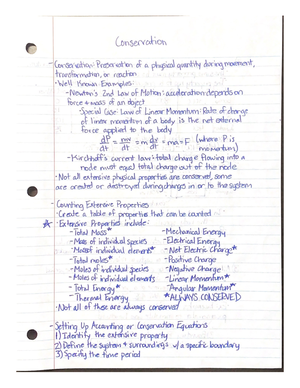 Conservation
- Conservation: Preservation of a physical quantity during movement,
transformation, or reaction
- Well Known Examples:
- Newton's 2nd Law of Motion: acceleration depends on
force + mass of an object
- Special Case: Law of Linear Momentum: Rate of change
of linear momentum of a body is the net external
force applied to the body
dP/dt = mv/dt = m dv/dt = ma = F (where P is
momentum)
- Kirchhoff's current law: total charge flowing into a
node must equal total charge out of the node.
- Not all extensive physical properties are conserved, some
are created or destroyed during changes in or to the system
- Counting Extensive Properties
- Create a table of properties that can be counted
* Extensive Properties include:
- Total Mass* - Mechanical Energy
- Mass of individual species - Electrical Energy
- Mass of individual elements* - Net Electric Charge*
- Total moles* - Positive Charge
- Moles of individual species - Negative Charge
- Moles of individual elements - Linear Momentum*
- Total Energy* - Angular Momentum*
- Thermal Energy *ALWAYS CONSERVED
- Not all of these are always conserved
- Setting Up Accounting or Conservation Equations
1) Identify the extensive property
2) Define the system + surroundings w/a specific boundary
3) Specify the time period